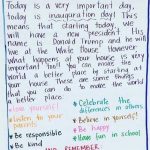 Today is a very important day,
today is inauguration day! This
means that starting today, we
will have a new president. His
name is Donald Trump and he will
live at the White House. However,
what happens at your house is very
important too! You can make the
world a better place by starting at
your house. These are some things
that you can do to make the world
a better place.
Love yourself!
Listen to your
Be responsible
Be kind
Celebrate the
differences of others
Believe in yourself!
Be happy
Have fun in school
AND REMEMBER